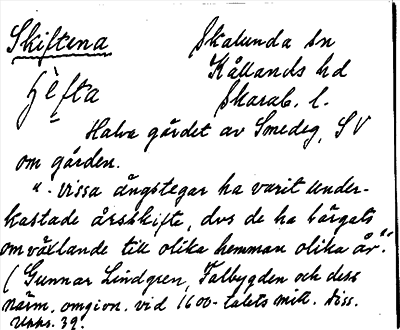 Skiftena Skalunda sn
Kållands hd
hèfta Skarab. l.
Halva gärdet av Smedeg, SV
om gården.
"- Vissa ängstegar ha varit under-
kastade årsskifte, dvs de ha bärgats
omväxlande till olika hemman olika år."
(Gunnar Lindgren, Falbygden och dess
närm. omgivn. vid 1600-talets mitt. Diss.
Upps. 39.